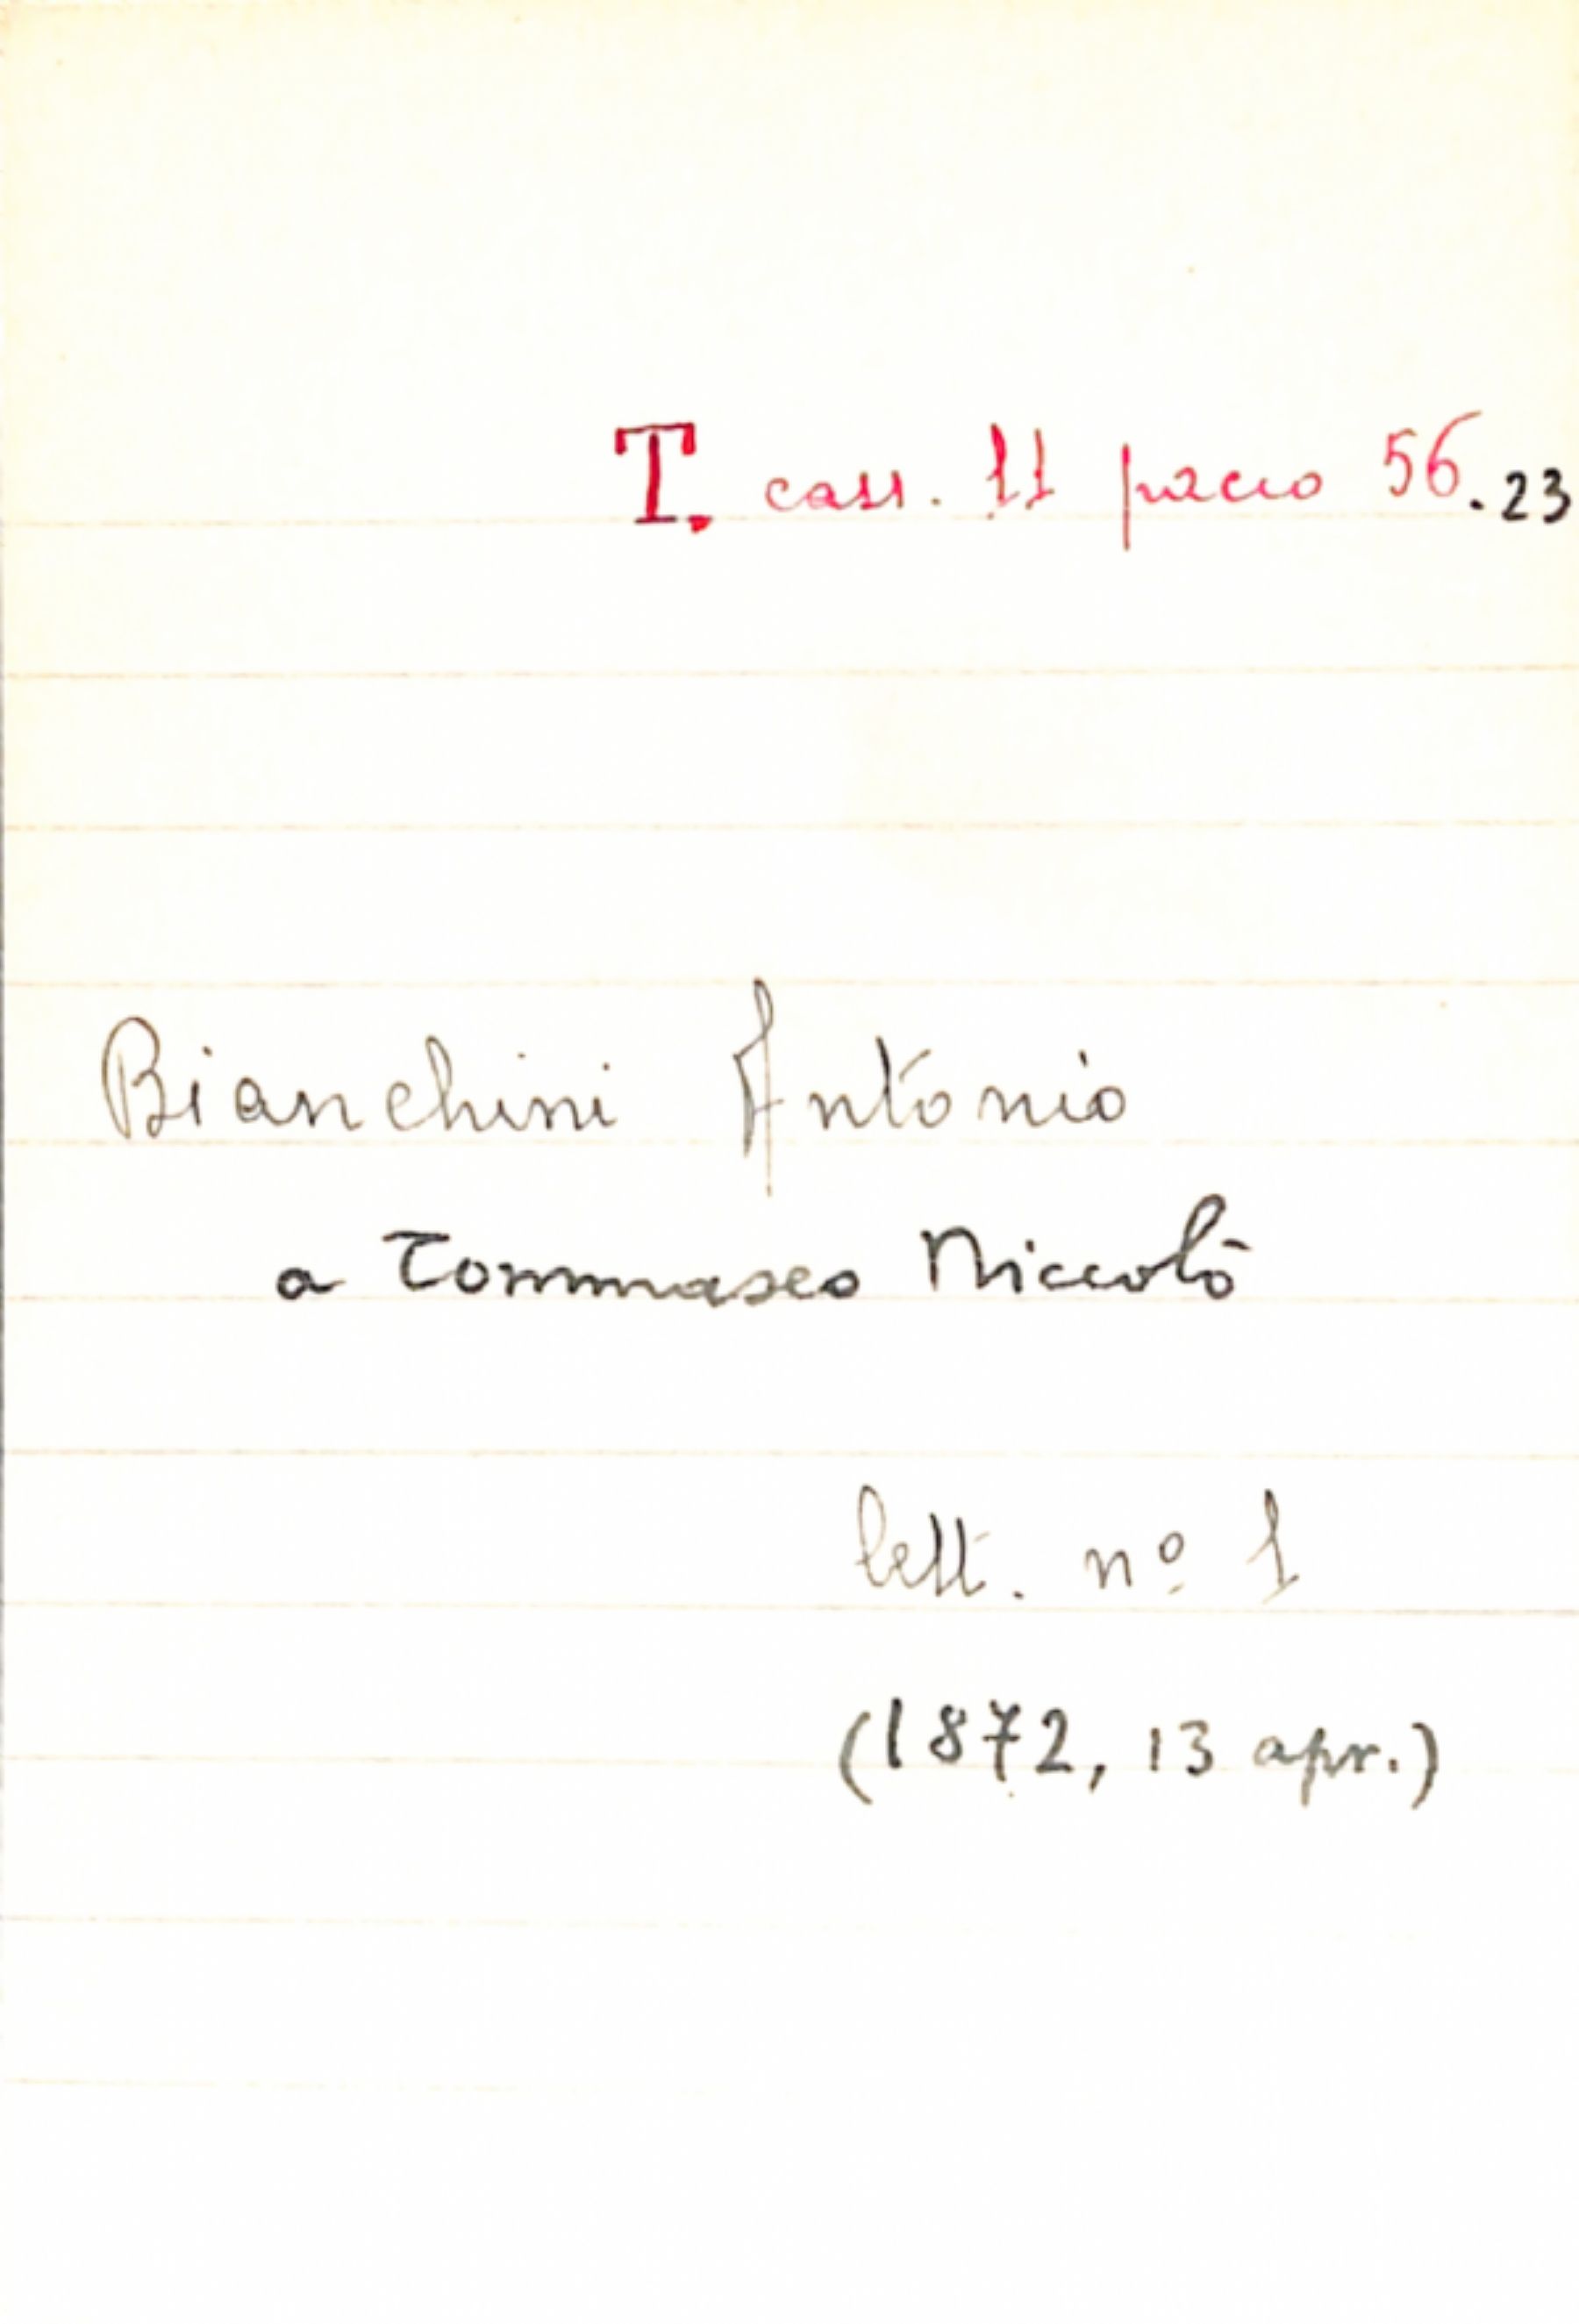 T. cass. 11 pacco 56.23
Bianchini Antonio
a Tommaseo Niccolò
lett. nº 1
(1872, 13 apr.)